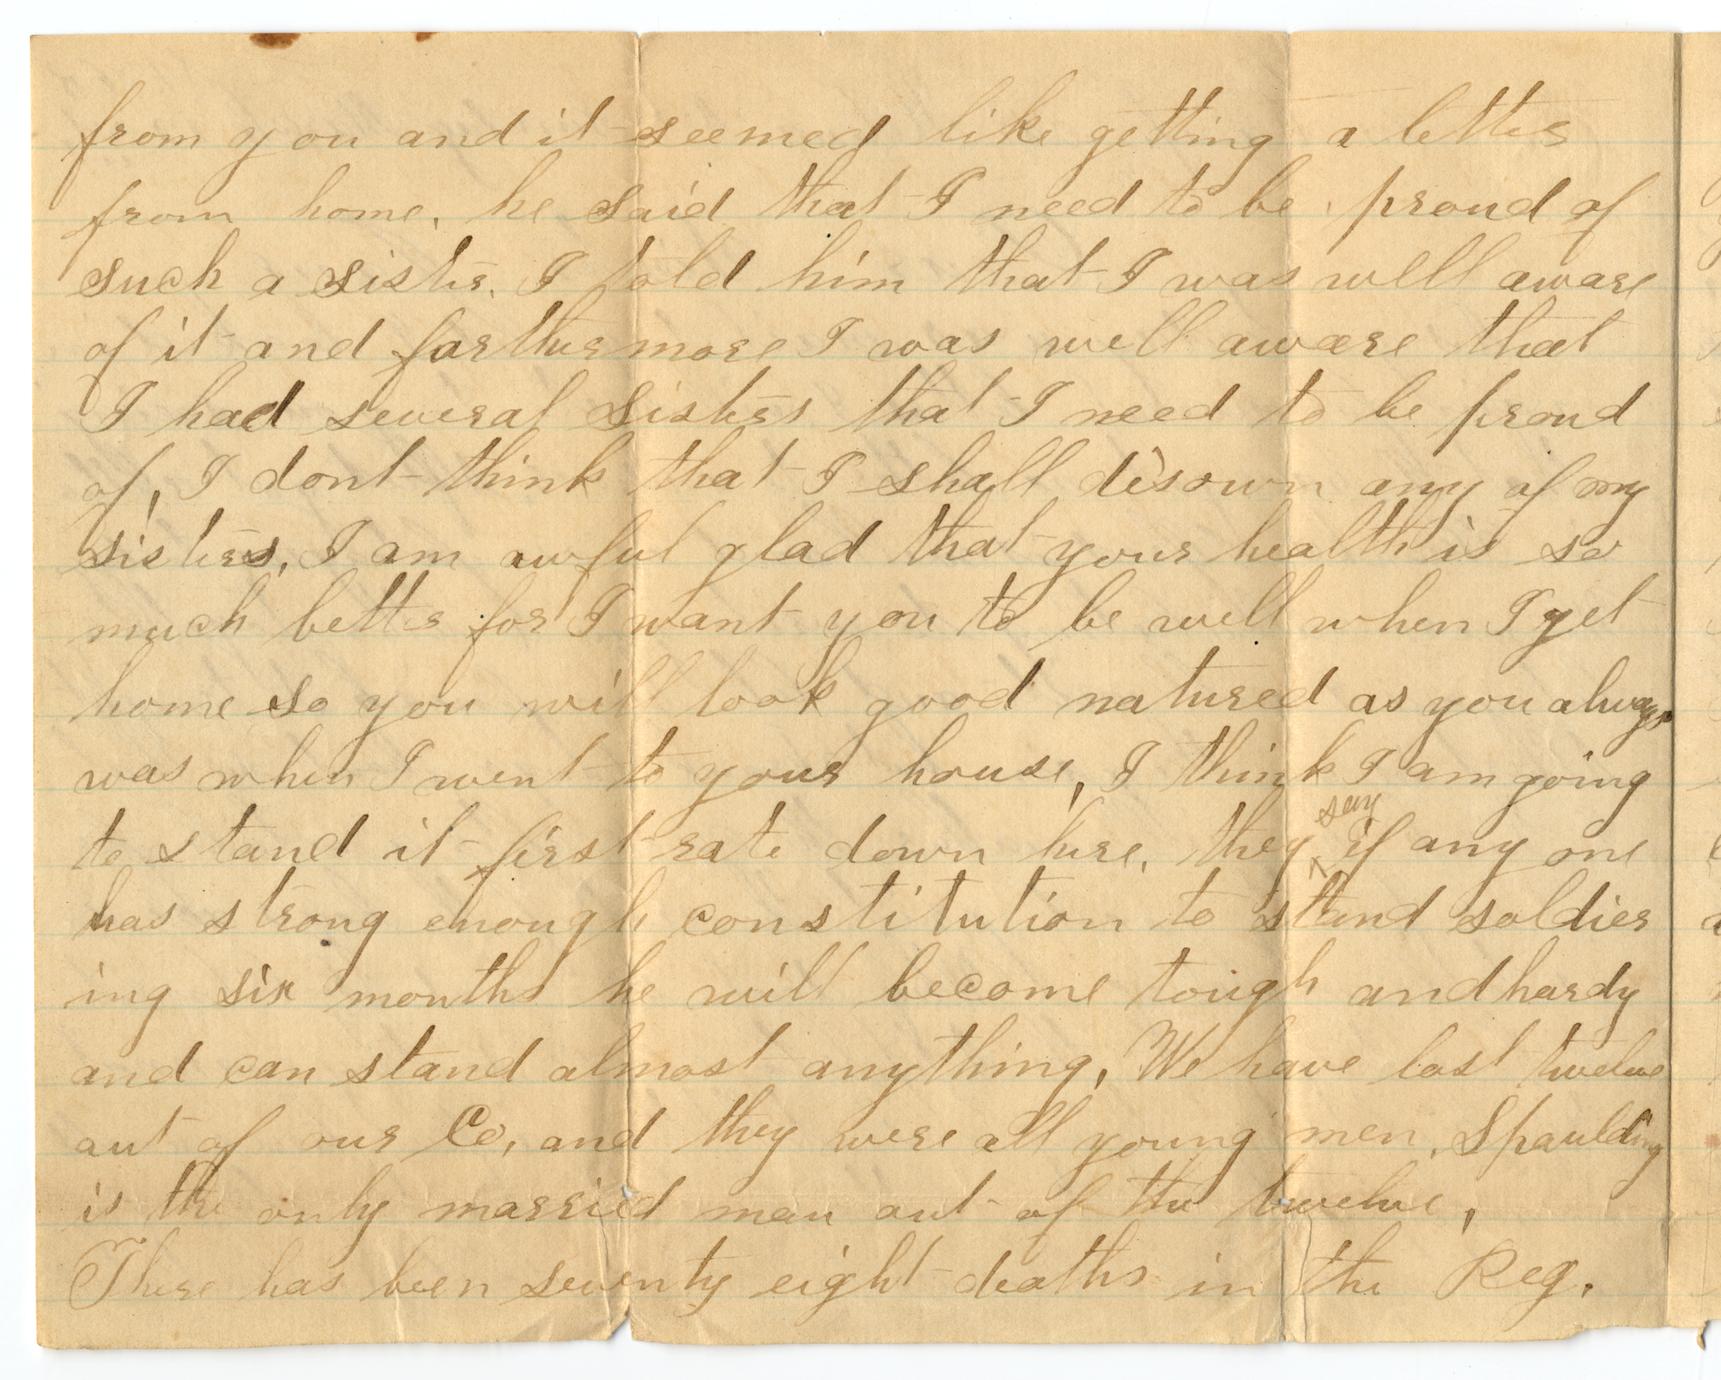 from you and it seemed like getting a letter
from home, he said that I need to be proud of
such a sister. I told him that I was well aware
of it and farthermore I was well aware that
I had several sisters that I need to be proud
of, I dont think that I shall disown any of my
sisters, I am awful glad that your health is so
much better for I want you to be well when I get
home so you will look good natured as you always
was when I went to your house, I think I am going
to stand it first rate down here, they say if any one
has strong enough constitution to stand soldier
ing six months he will become tough and hardy
and can stand almost anything, We have lost twelve
out of our Co, and they were all young men, Spaulding
is the only married man out of the twelve,
There has been seventy eight deaths in the Reg.